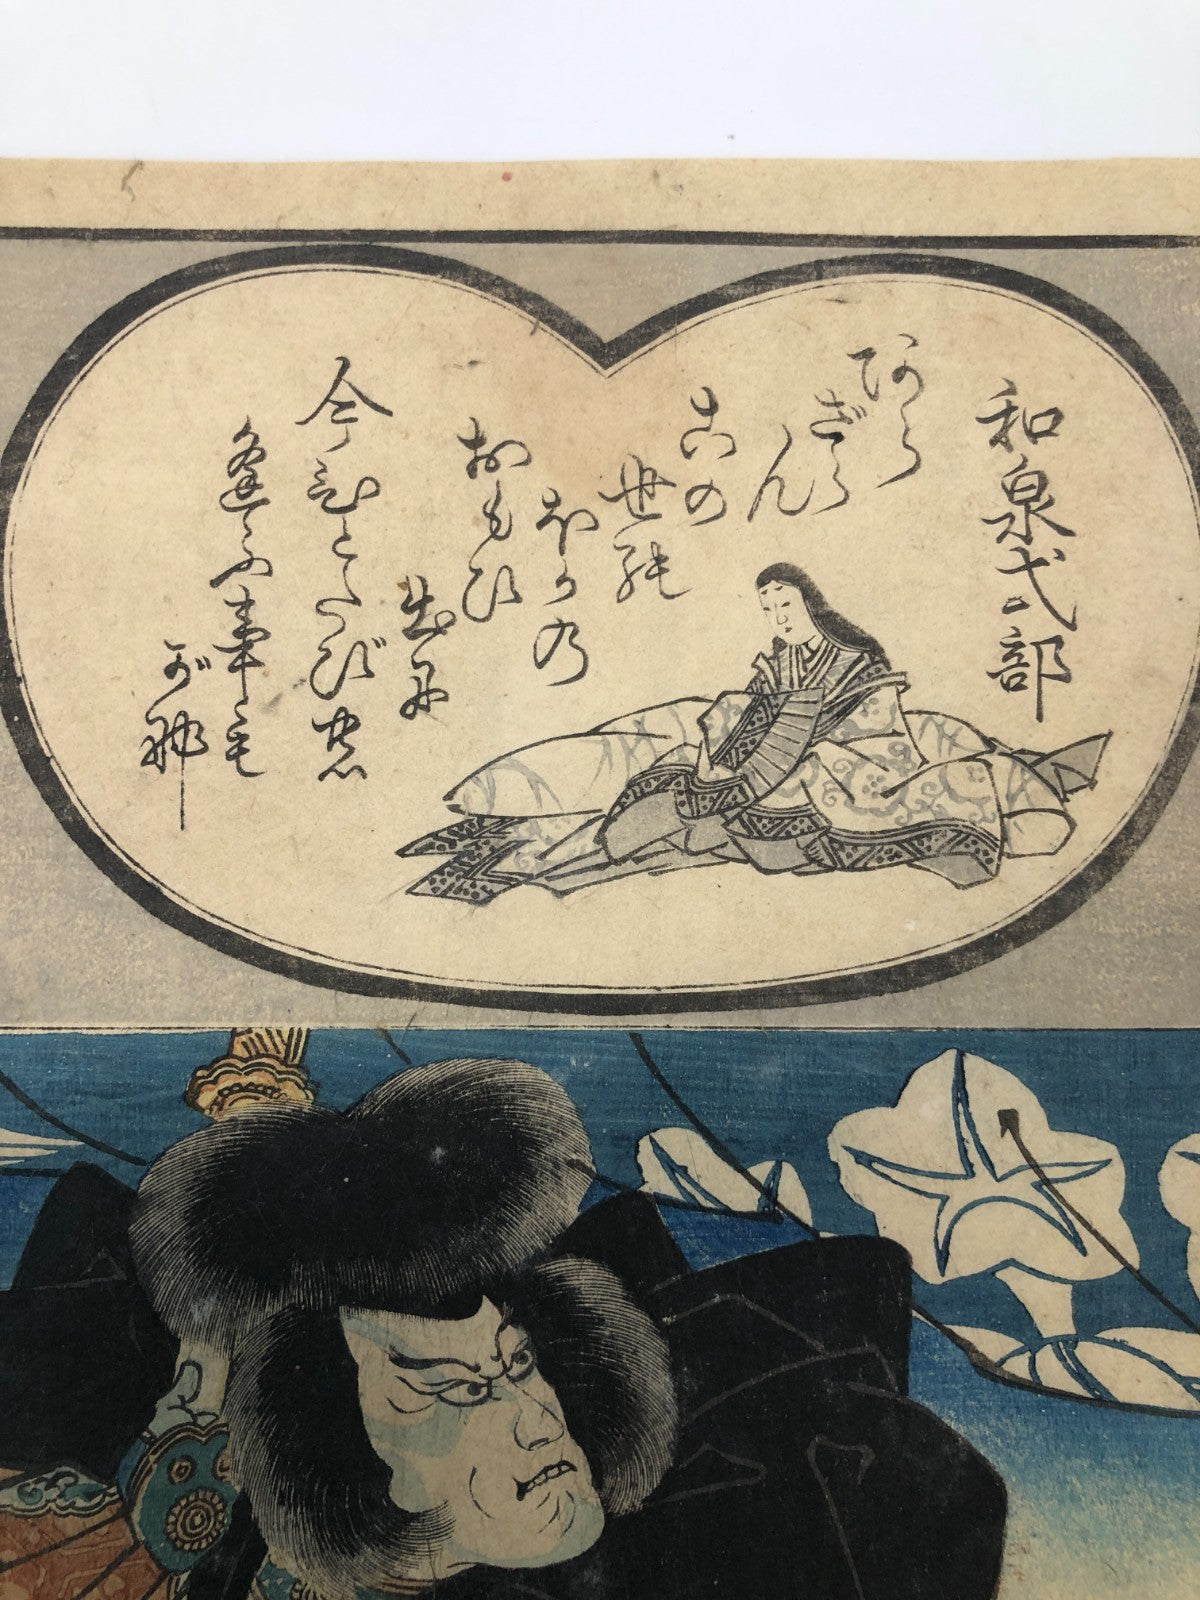 和泉式部
あら
ざら
ん
この
世の
ほかの
おもひ
出に
今ひとたびの
逢ふ事も
がな